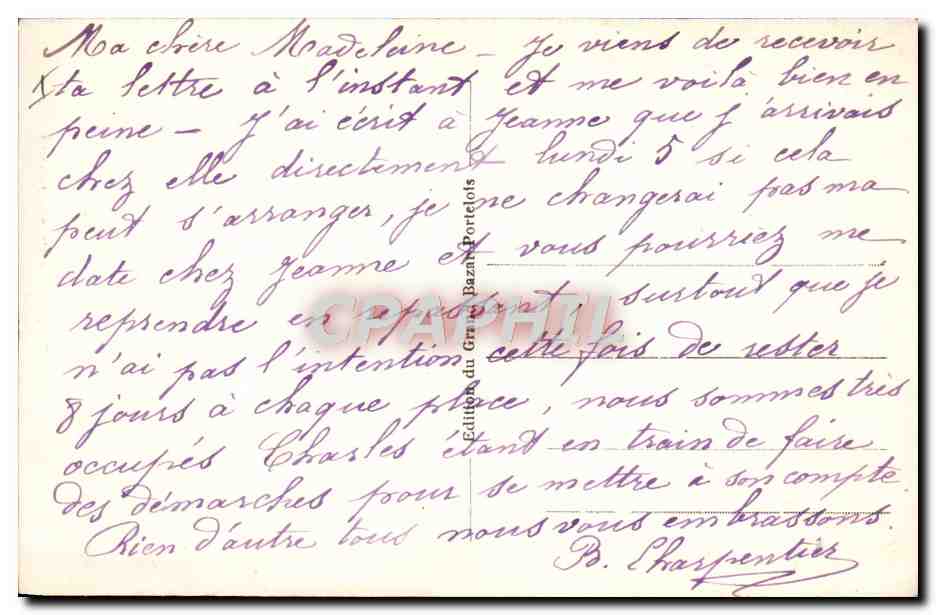 Ma chère Madeleine – Je viens de recevoir
ta lettre à l'instant et me voilà bien en
peine – J'ai écrit à Jeanne que j'arrivais
chez elle directement lundi 5 si cela
peut s'arranger, je ne changerai pas ma
date chez Jeanne et vous pourriez me
reprendre en repassant, surtout que je
n'ai pas l'intention cette fois de rester
8 jours à chaque place, nous sommes très
occupés Charles étant en train de faire
des démarches pour se mettre à son compte.
Rien d'autre tous nous vous embrassons.
B. Charpentier
Edition du Grand Bazar Portelois
CPAPHIL